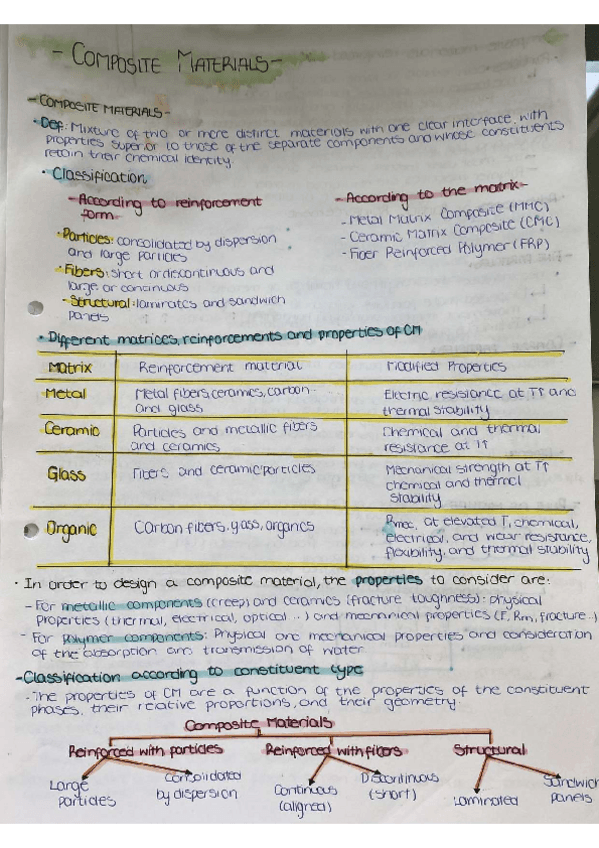 - COMPOSITE MATERIALS -
- COMPOSITE MATERIALS -
· Def: Mixture of two or more distinct materials with one clear interface, with
properties superior to those of the separate components and whose constituents
retain their chemical identity.
· Classification
- According to reinforcement
form -
· Particles: consolidated by dispersion
and large particles
· Fibers: short or discontinuous and
large or continuous
· Structural: laminates and sandwich
panels
- According to the matrix -
- Metal Matrix Composite (MMC)
- Ceramic Matrix Composite (CMC)
- Fiber Reinforced Polymer (FRP)
· Different matrices, reinforcements and properties of CM
Matrix Reinforcement material Modified Properties
Metal Metal fibers, ceramics, carbon
and glass
Electric resistance at T↑ and
thermal stability
Ceramic Particles and metallic fibers
and ceramics
Chemical and thermal
resistance at T↑
Glass Fibers and ceramic particles
Mechanical strength at T↑
chemical and thermal
stability
Organic Carbon fibers, glass, organics
at elevated T, chemical,
electrical, and wear resistance,
flexibility, and thermal stability
· In order to design a composite material, the properties to consider are:
- For metallic components (creep) and ceramics (fracture toughness): physical
properties (thermal, electrical, optical...) and mechanical properties (E, Rm, fracture..)
- For polymer components: Physical and mechanical properties and consideration
of the absorption and transmission of water
- Classification according to constituent type
· The properties of CM are a function of the properties of the constituent
phases, their relative proportions, and their geometry.
Composite Materials
Reinforced with particles Reinforced with fibers Structural
Large
particles
Consolidated
by dispersion
Continuous
(aligned)
Discontinuous
(short)
Laminated
Sandwich
panels